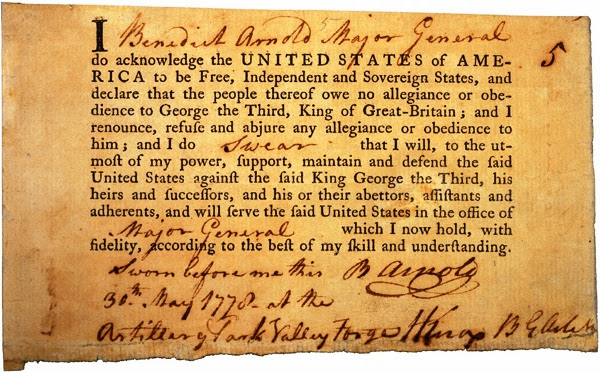 I Benedict Arnold Major General
5
do acknowledge the UNITED STATES of AME-
RICA to be Free, Independent and Sovereign States, and
declare that the people thereof owe no allegiance or obe-
dience to George the Third, King of Great-Britain; and I
renounce, refuſe and abjure any allegiance or obedience to
him; and I do Swear that I will, to the ut-
moſt of my power, ſupport, maintain and defend the ſaid
United States againſt the ſaid King George the Third, his
heirs and ſucceſſors, and his or their abettors, aſſiſtants and
adherents, and will ſerve the ſaid United States in the office of
Major General which I now hold, with
fidelity, according to the beſt of my ſkill and underſtanding.
Sworn before me this B Arnold
30th May 1778 at the
Artillery Park Valley Forge HKnox B G